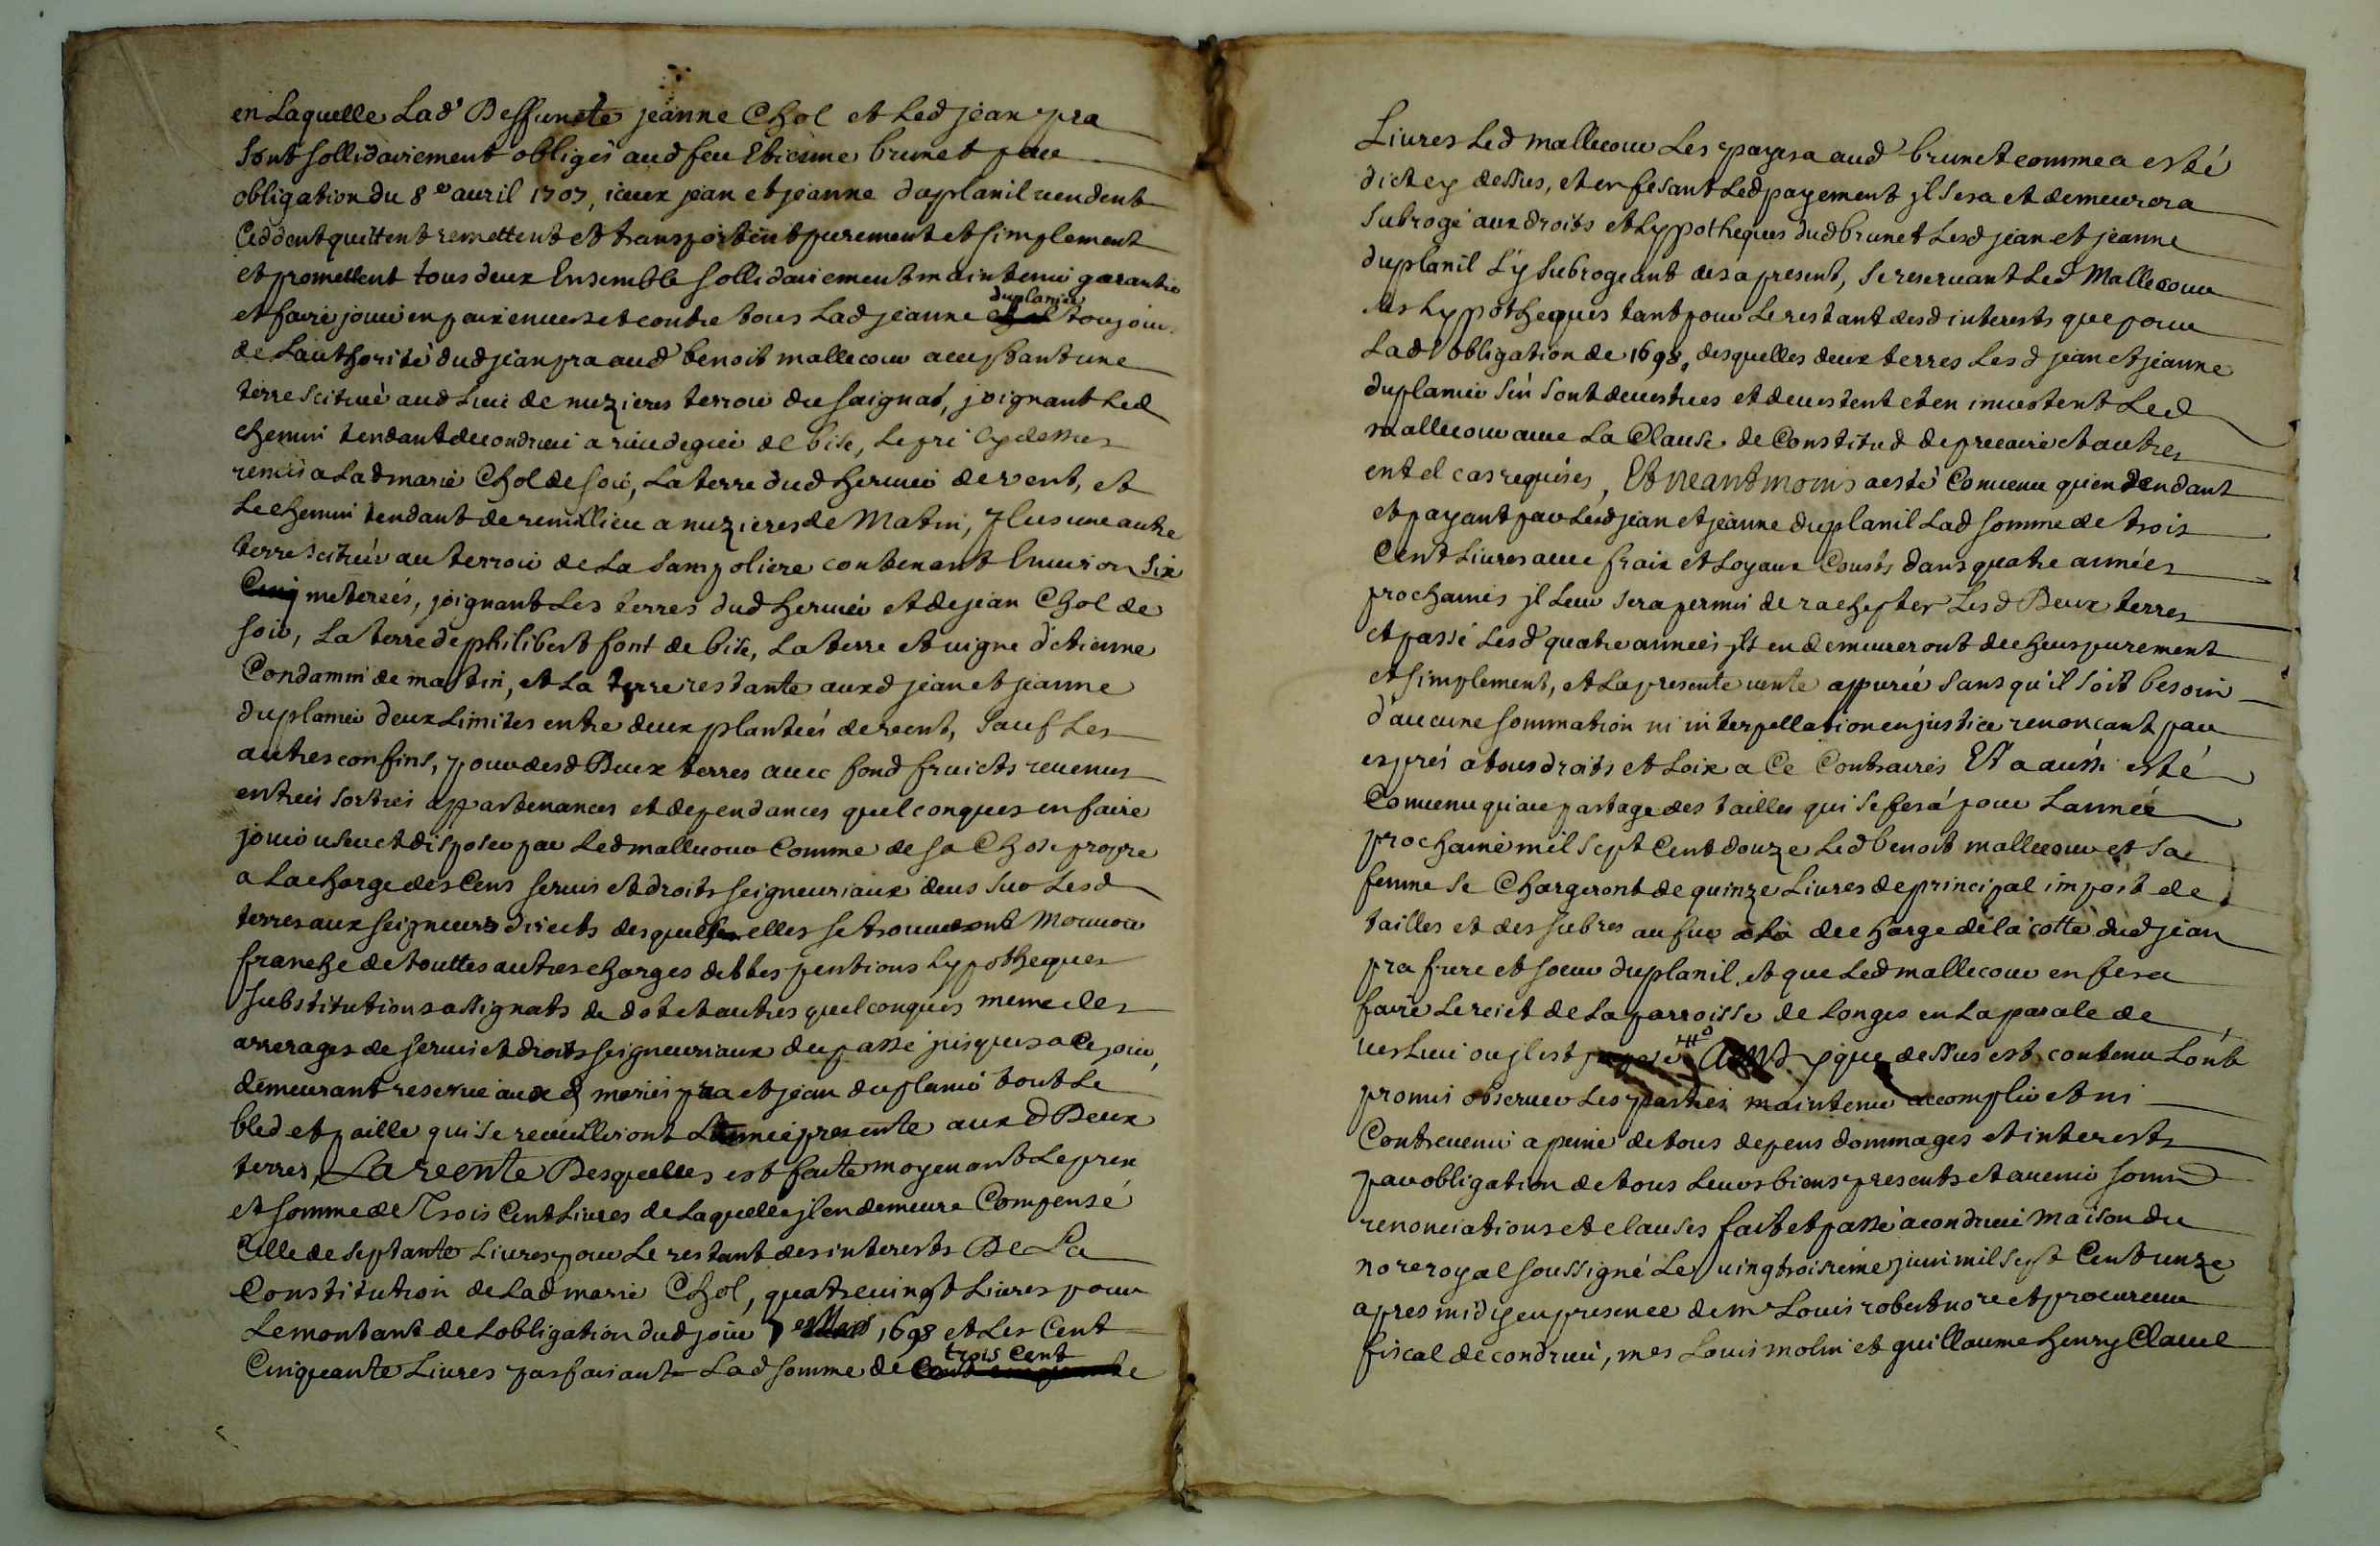 en Laquelle Lad' Deffuncte jeanne Chol et Led jean pra
sont sollidairement obligés aud feu Etienne brunet par
obligation du 8e auril 1707, iceux jean et jeanne duplanil uendent
Ceddent quittent remettent et transportent purement et simplement
et promettent tous deux Ensemble sollidairement maintenir garantir
et faire jouir en paix enuers et contre tous Lad jeanne duplanier toujour
de Lauthorité dud jean pra aud benoit mallecour acceptant une
terre scitueé aud Lieu de nuzieres terroir du saignat, joignant Led
chemin tendant de condrieu a riue de gier de bise, Le pré cy dessus
remis a Lad marie Chol de soir, La terre dud hermier de vent, et
Le chemin tendant de remillieu a nuzieres de Matin, Plus une autre
terre scitueé au terroir de La sampoliere contenant Enuiron six
meterées, joignant Les terres dud hermier et de jean Chol de
soir, La terre de philibert font de bise, La terre et uigne d'etienne
Condamin de mastin, et La terre restante auxd jean et jeanne
duplanier deux Limites entre deux plantées de vent, sauf Les
autres confins, pour desd Deux terres auec fond fruicts reuenus
entreés sortiés appartenances et dependances quelconques en faire
jouir user et disposer par Led mallecour Comme de sa Chose propre
a La charge des Cens seruis et droits seigneuriaux deus sur Lesd
terres aux seigneurs directs desquels elles se trouueront Mouuoir
franche de touttes autres charges debtes pentions hypotheques
substitutions assignats de dot et autres quelconques meme des
arrerages de seruis et droits seigneuriaux du passé jusques a Ce jour,
demeurant reserué aux d mariés pra et jean duplanié tout Le
bled et paille qui se recuilliront Lannée presente aux d Deux
terres, La vente Desquelles est faite moyenant Le prix
et somme de Trois Cent Liures de Laquelle jl en demeure Compensé
Celle de septante Liures pour Le restant des interests De La
Constitution de Lad marie Chol, quatreuingt Liures pour
Le montant de Lobligation dud jour 7 1698 et Les Cent
Cinquante Liures parfaisant Lad somme de trois Cent
Liures Led mallecour Les payera aud brunet comme a esté
dict cy dessus, et en fesant Led payement jl sera et demeurera
subrogé aux droits et hypotheques dud brunet Lesd jean et jeanne
duplanil L'y subrogeant des a present, se reseruant Led Mallecour
les hypotheques tant pour Le restant desd interests que pour
Lad obligation de 1698, desquelles deux terres Lesd jean et jeanne
duplanier s'en sont deuestues et deuestent et en inuestent Led
mallecour auec La Clause de Constitud de precaire et autres
en tel cas requises, Et neantmoins a esté Conuenu qu'en Rendant
et payant par Lesd jean et jeanne duplanil Lad somme de trois
Cent Liures auec fraix et Loyaux Cousts dans quatre années
prochaines jl Leur sera permis de rachepter Lesd Deux terres
et passé Lesd quatre années jls en demeureront decheus purement
et simplement, et La presente uente appurée sans qu'il soit besoin
d'aucune sommation ni interpellation en justice renoncant par
exprés a tous droits et Loix a Ce Contraires Et a aussi esté
Conuenu qu'au partage des tailles qui se fera pour Lannée
prochaine mil sept Cent douze Led benoit mallecour et sa
femme se Chargeront de quinze Liures de principal impost de
tailles et des subres au fur a La decharge de la cotte dud jean
pra frere et soeur duplanil et que Led mallecour en fera
faire Le reiet de La parroisse de Longes en La parcelle de
uerlieu ou jl est que dessus est contenu L'ont
promis obseruer Les parties maintenir accomplir et ni
Contreuenir a peine de tous depens dommages et interests
par obligation de tous Leurs biens presents et auenir soumd
renonciations et clauses fait et passé a condrieu Maison du
nore royal soussigné Le uingtroisieme juin mil sept Cent unze
apres midy en presence de mr Louis robert nore et procureur
fiscal de condrieu, mes Louis molin et guillaume henry Clauel